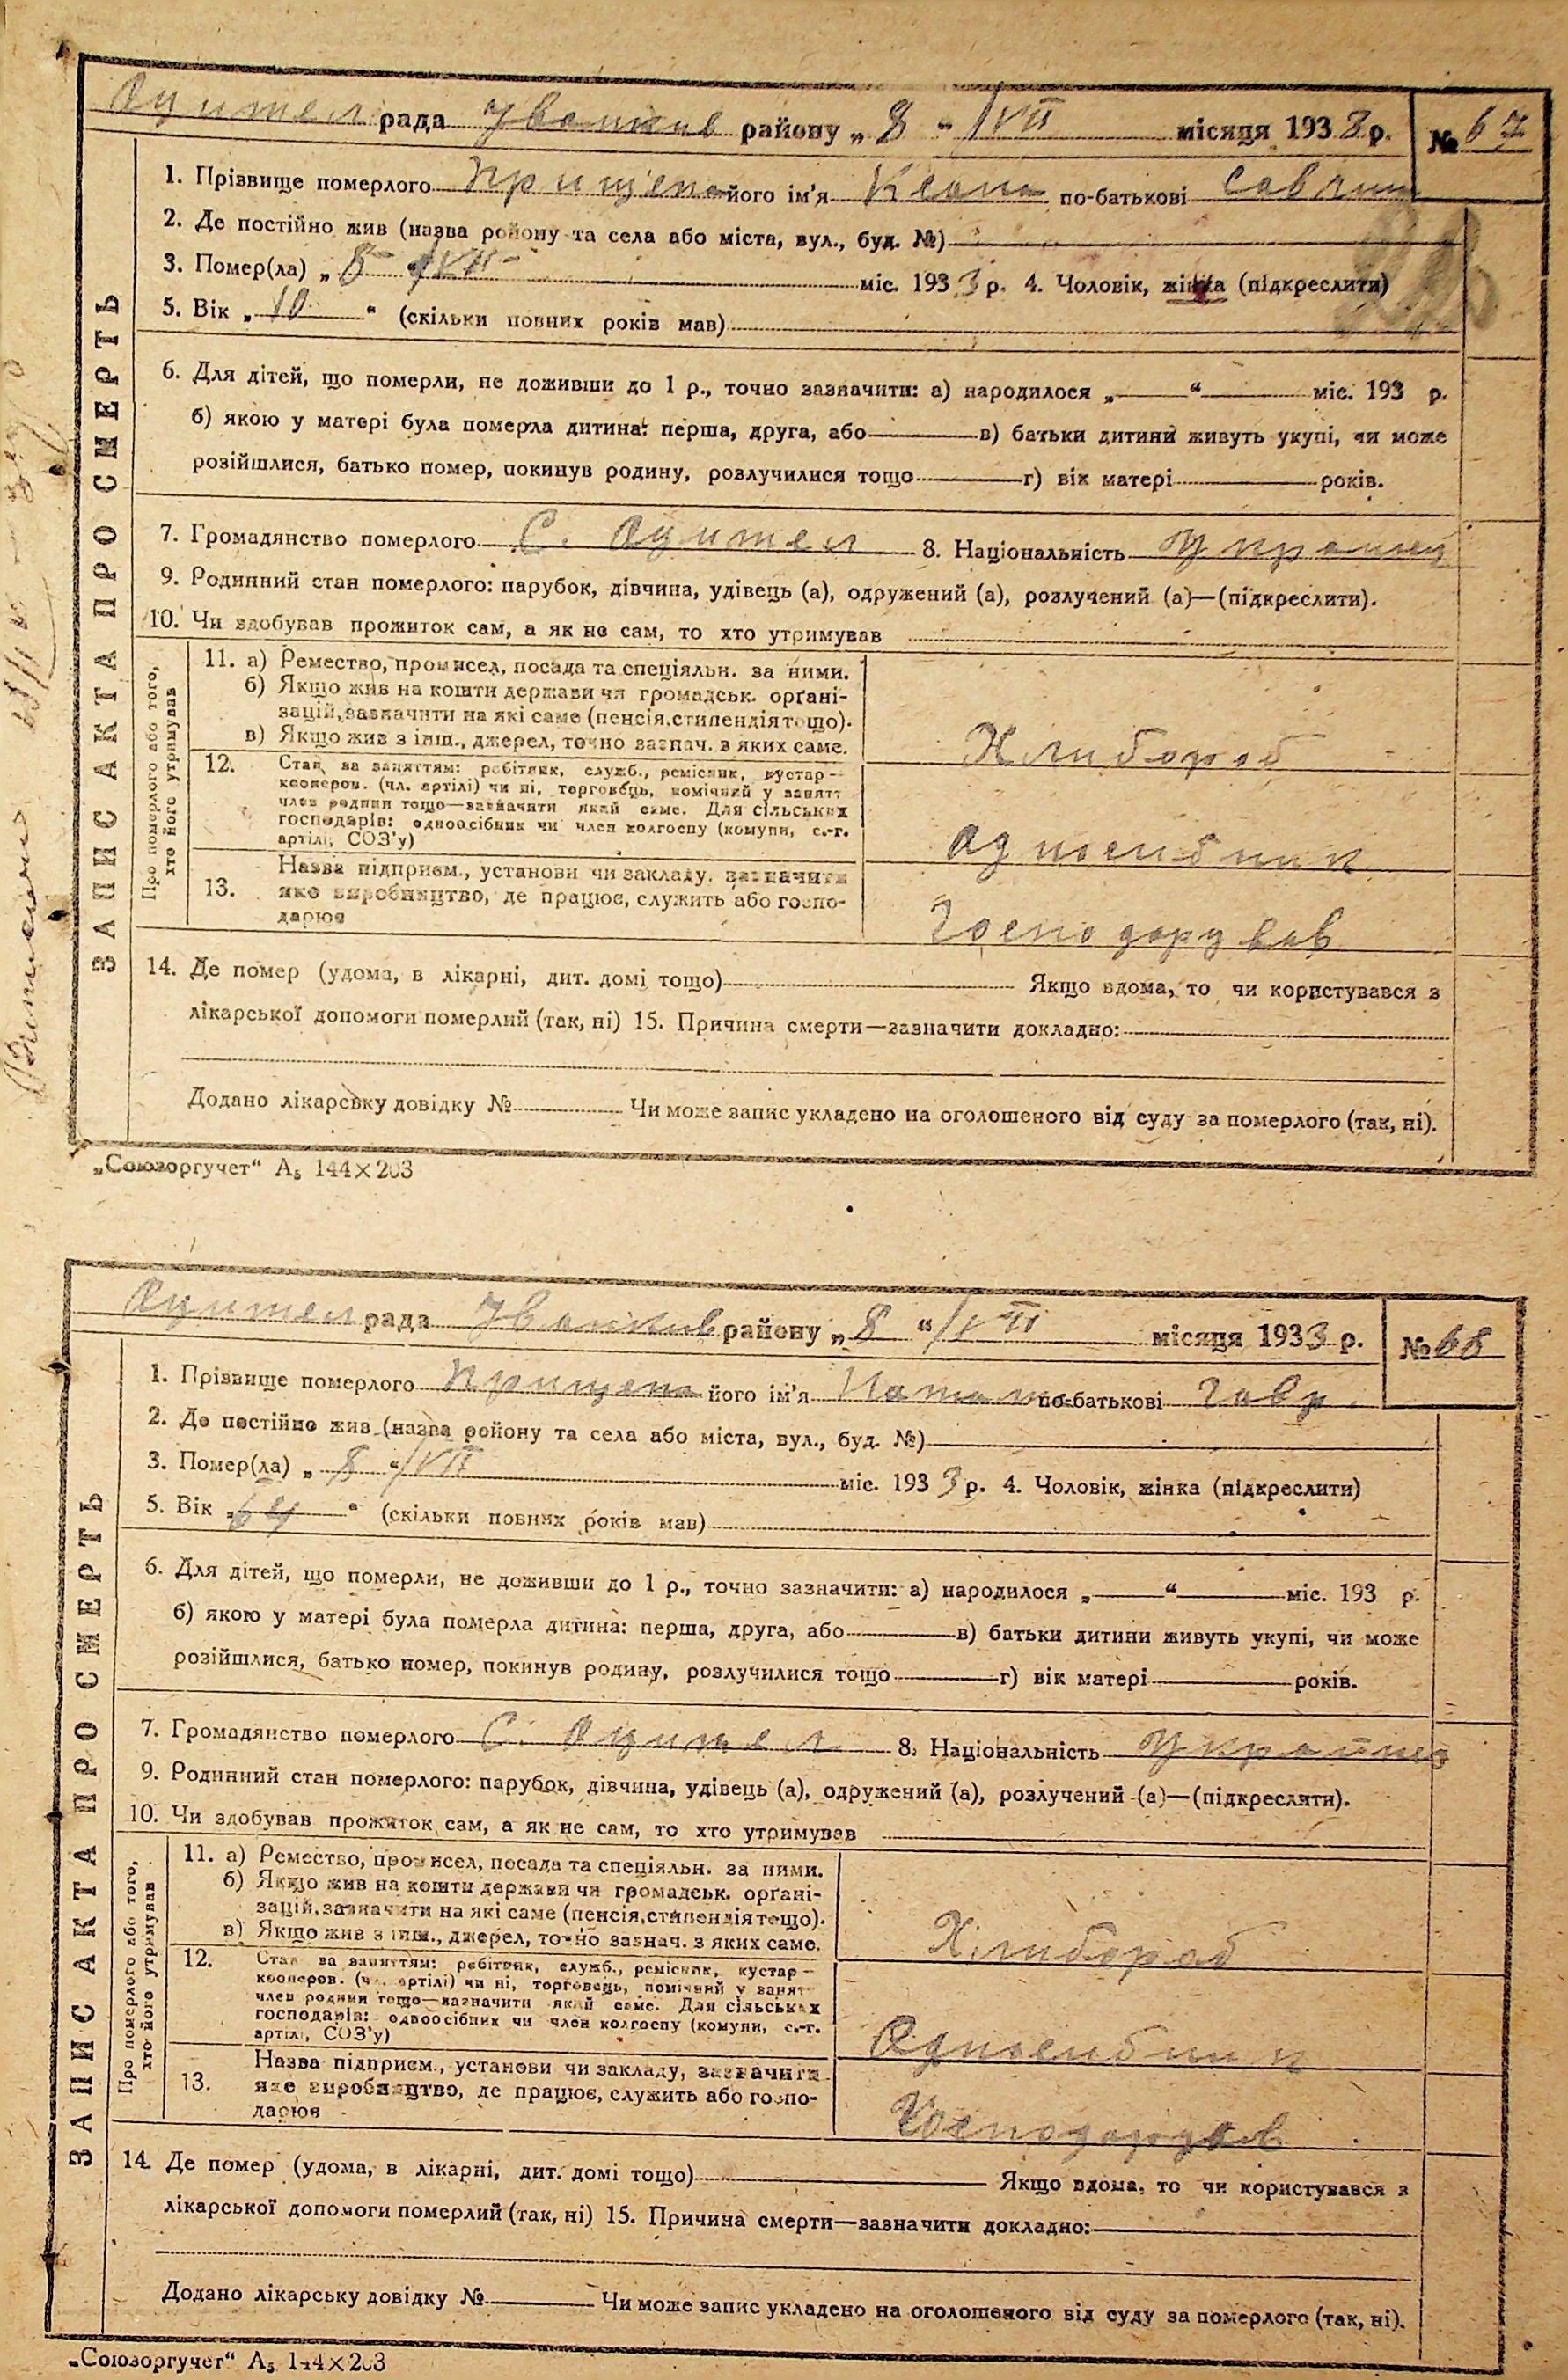 Оцител рада Іванків району „ 8 “ /VII місяця 1933 р. № 67
1. Прізвище померлого Прищепа його ім'я по-батькові
2. Де постійно жив (назва району та села або міста, вул., буд. №)
3. Помер(ла) „ 8 “ /VII міс. 1933 р. 4. Чоловік, жінка (підкреслити)
5. Вік „ 10 “ (скільки повних років мав)
6. Для дітей, що померли, не доживши до 1 р., точно зазначити: а) народилося „ “ міс. 193 р.
б) якою у матері була померла дитина: перша, друга, або в) батьки дитини живуть укупі, чи може
розійшлися, батько помер, покинув родину, розлучилися тощо г) вік матері років.
7. Громадянство померлого С. Оцител 8. Національність Украинец
9. Родинний стан померлого: парубок, дівчина, удівець (а), одружений (а), розлучений (а)—(підкреслити).
10. Чи здобував прожиток сам, а як не сам, то хто утримував
11. а) Ремество, промисел, посада та спеціяльн. за ними.
б) Якщо жив на кошти держави чи громадськ. орґані-
зацій, зазначити на які саме (пенсія, стипендія тощо).
в) Якщо жив з інш., джерел, точно зазнач. з яких саме.
Хлибороб
12. Стан за заняттям: робітник, служб., ремісник, кустар—
кооперов. (чл. артілі) чи ні, торговець, помічний у занятт
член родини тощо—зазначити який саме. Для сільських
господарів: одноосібник чи член колгоспу (комуни, с.-г.
артілі, СОЗ'у)
Одноенбник
13. Назва підприєм., установи чи закладу, зазначити
яке виробництво, де працює, служить або госпо-
дарює
Господарував
14. Де помер (удома, в лікарні, дит. домі тощо) Якщо вдома, то чи користувався з
лікарської допомоги померлий (так, ні) 15. Причина смерти—зазначити докладно:
Додано лікарську довідку № Чи може запис укладено на оголошеного від суду за померлого (так, ні).
ЗАПИС АКТА ПРО СМЕРТЬ
Про померлого або того,
хто його утримував
„Союзоргучет“ А₅ 144×203
Оцител рада Іванків району „ 8 “ /VII місяця 1933 р. № 68
1. Прізвище померлого Прищепа його ім'я по-батькові Гавр.
2. Де постійно жив (назва району та села або міста, вул., буд. №)
3. Помер(ла) „ 8 “ /VII міс. 1933 р. 4. Чоловік, жінка (підкреслити)
5. Вік „ 64 “ (скільки повних років мав)
6. Для дітей, що померли, не доживши до 1 р., точно зазначити: а) народилося „ “ міс. 193 р.
б) якою у матері була померла дитина: перша, друга, або в) батьки дитини живуть укупі, чи може
розійшлися, батько помер, покинув родину, розлучилися тощо г) вік матері років.
7. Громадянство померлого С. Оцител 8. Національність Украинец
9. Родинний стан померлого: парубок, дівчина, удівець (а), одружений (а), розлучений (а)—(підкреслити).
10. Чи здобував прожиток сам, а як не сам, то хто утримував
11. а) Ремество, промисел, посада та спеціяльн. за ними.
б) Якщо жив на кошти держави чи громадськ. орґані-
зацій, зазначити на які саме (пенсія, стипендія тощо).
в) Якщо жив з інш., джерел, точно зазнач. з яких саме.
Хлибороб
12. Стан за заняттям: робітник, служб., ремісник, кустар—
кооперов. (чл. артілі) чи ні, торговець, помічний у занятт
член родини тощо—зазначити який саме. Для сільських
господарів: одноосібник чи член колгоспу (комуни, с.-г.
артілі, СОЗ'у)
Одноенбник
13. Назва підприєм., установи чи закладу, зазначити
яке виробництво, де працює, служить або госпо-
дарює
Господарував
14. Де помер (удома, в лікарні, дит. домі тощо) Якщо вдома, то чи користувався з
лікарської допомоги померлий (так, ні) 15. Причина смерти—зазначити докладно:
Додано лікарську довідку № Чи може запис укладено на оголошеного від суду за померлого (так, ні).
ЗАПИС АКТА ПРО СМЕРТЬ
Про померлого або того,
хто його утримував
„Союзоргучет“ А₅ 144×203